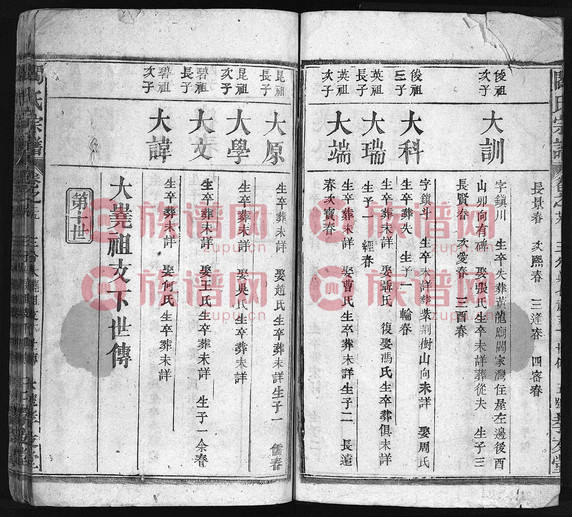 長景春 次熙春 三逢春 四富春
俊祖
次子
大訓
字鎮川 生卒失葬黃龍廟關家灣住屋左邊後酉
山卯向有碑 娶張氏生卒未詳葬從夫 生子三
長賢春 次愛春 三酉春
俊祖
三子
大科
字鎮斗 生卒未詳葬紫荊樹山向未詳 娶周氏
生卒失葬 生子一 輪春
英祖
長子
大瑞
生卒葬未詳 娶謝氏 復娶馮氏生卒葬俱未詳
生子一 經春
英祖
次子
大端
生卒葬未詳 娶曹氏生卒葬未詳生子二 長遠
春次寶春
昆祖
長子
大原
生卒葬未詳 娶趙氏生卒葬未詳生子一 儒春
昆祖
次子
大學
生卒葬未詳 娶吳氏生卒葬未詳
碧祖
長子
大文
生卒葬未詳 娶王氏生卒葬未詳 生子一余春
碧祖
次子
大諱
生卒葬未詳 娶何氏生卒葬未詳
大堯祖支下世傳
第十世
族谱网
zupu.cn
族谱网
zupu.cn
族谱网
zupu.cn
族谱网
zupu.cn